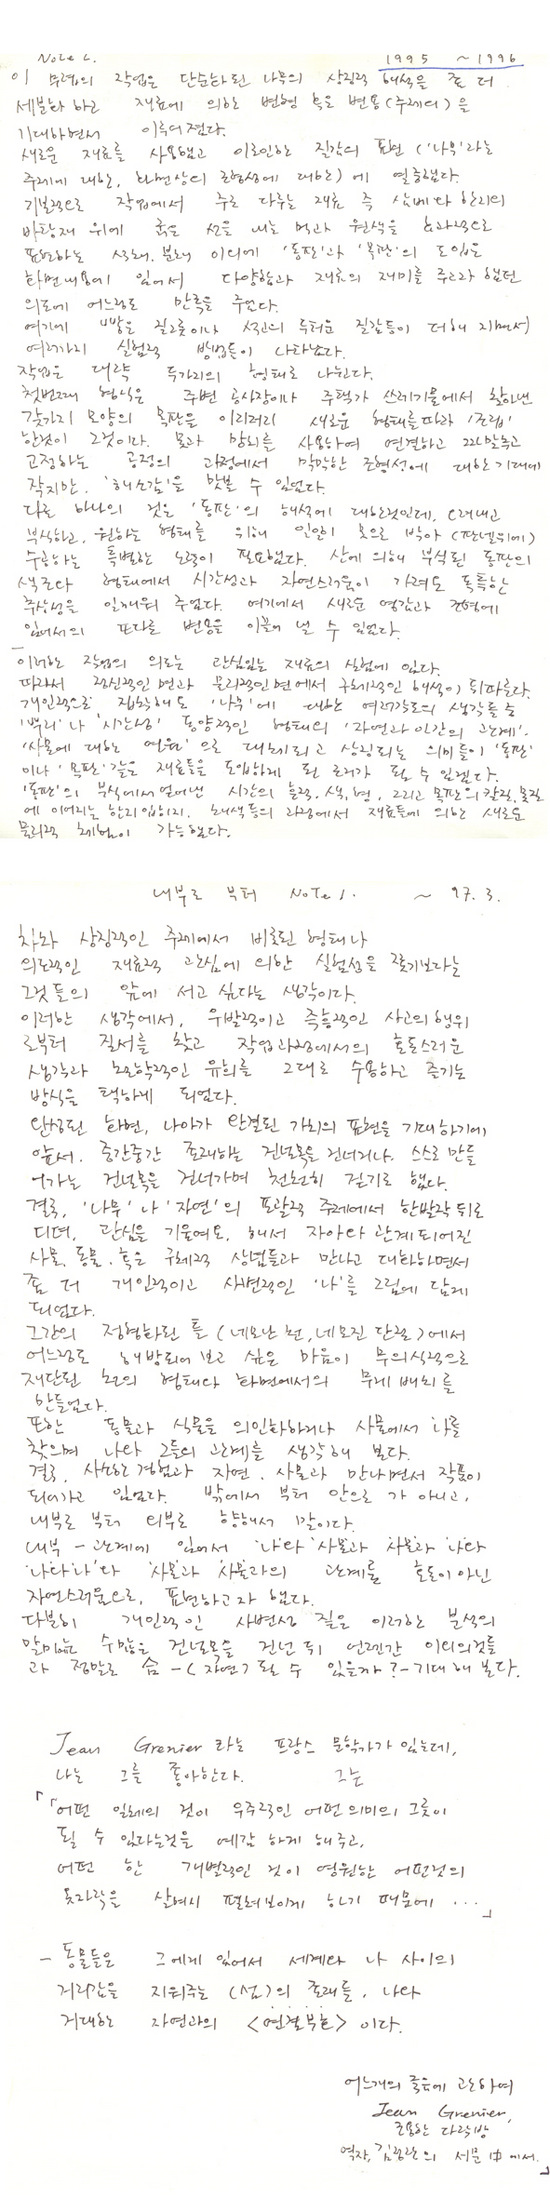 Note 2. 1995 ~1996
이 무렵의 작업은 단순화된 나무의 상징적 해석을 좀 더
세분화 하고 재료에 의한 변형 혹은 변용(주제의)을
기대하면서 이루어졌다.
새로운 재료를 사용했고 이로인한 질감의 표현 ('나무'라는
주제에 대한, 화면상의 조형성에 대한)에 열중했다.
기본적으로 작업에서 주로 다루는 재료 즉 삼베나 한지의
바탕재 위에 굵은 선을 내는 먹과 원색을 효과적으로
표현하는 석채, 분채 이외에 '동판'과 '목판'의 도입은
화면내용에 있어서 다양함과 재료의 재미를 주고자 했던
의도에 어느정도 만족을 주었다.
여기에 빗방울 질그릇이나 석고의 두터운 질감등이 더해 지면서
여러가지 실험적 방법들이 나타났다.
작업은 대략 두가지의 형태로 나뉜다.
첫번째 형식은 주변 공사장이나 주택가 쓰레기물에서 찾아낸
갖가지 모양의 목판을 이리저리 새로운 형태를따라 '조립'
한것이 그것이다. 못과 망치를 사용하여 연결하고 끼워맞추고
고정하는 공정의 과정에서 막막한 조형성에 대한기대에
작지만, '해소감'을 맛볼 수 있었다.
다른 하나의 것은 '동판'의 해석에 대한것인데, 오려내고
부식하고, 원하는 형태를 위해 일일이 못으로 박아 (판넬위에)
수공하는 특별한 노력이 필요했다. 산에 의해 부식된 동판의
색조와 형태에서 시간성과 자연스러움이 가려도 독특한
추상성을 일깨워 주었다. 여기에서 새로운 영감과 전형에
있어서의 또다른 변용을 이끌어 낼 수 있었다.
이러한 작업의 의도는 관심있는 재료의 실험에 있다.
따라서 정신적인 면과 물리적인면에서 구체적인 해석이 뒤따른다.
개인적으로 집착해온 '나무'에 대한 여러각도의 생각들 중
'뿌리'나 '시간성' 동양적인 형태의 '자연과 인간의 관계'.
'사물에 대한 여운'으로 대치되고 상징되는 의미들이 '동판'
이나 '목판'같은 재료들을 도입하게 된 근거가 될 수 있겠다.
'동판'의 부식에서 얻어낸 시간의 흔적, 색, 면, 그리고 목판의 칼질, 못질
에 이어지는 한지 입히기, 채색등의 과정에서 재료들에 의한 새로운
물리적 체험이 가능했다.
내부로 부터 Note 1. ~ 97. 3.
차차 상징적인 주제에서 비롯된 형태나
의도적인 재료적 관심에 의한 실험성을 쫓기보다는
그것들의 앞에 서고 싶다는 생각이다.
이러한 생각에서, 우발적이고 즉흥적인 사고의 행위
로부터 질서를 찾고 작업과정에서의 혼돈스러운
생각과 조형적인 유희를 그대로 수용하고 즐기는
방식을 택하게 되었다.
완성된 화면, 나아가 완결된 가치의 표현을 기대하기에
앞서, 중간중간 존재하는 건널목을 건너거나, 스스로 만들
어가는 건널목을 건너가며 천천히 걷기로 했다.
결국, '나무'나 '자연'의 포괄적 주제에서 한발작 뒤로
디뎌, 관심을 기울여온, 해서 자아와 관계되어진
사물, 동물, 혹은 구체적 상념들과 만나고 대화하면서
좀 더 개인적이고 사변적인 '나'를 그림에 담게
되었다.
그간의 정형화된 틀 (네모난 천, 네모진 단절)에서
어느정도 해방되어 보고 싶은 마음이 무의식적으로
재단된 천의 형태와 화면에서의 무게 배치를
만들었다.
또한 동물과 식물을 의인화하거나 사물에서 '나'를
찾으며 나와 그들의 관계를 생각해 본다.
결국, 사소한 경험과 자연, 사물과 만나면서 작품이
되어가고 있었다. 밖에서 부터 안으로 가 아니고,
내부로 부터 외부로 향해서 말이다.
내부 - 관계에 있어서 '나'와 '사물과 사물과 나'와
'나'와'나'와 '사물과 사물과의 관계를 혼돈이 아닌
자연스러움으로, 표현하고자 했다.
다분히 개인적인 사변성 짙은 이러한 분석의
말미에는 수많은 건널목을 건넌 뒤 언젠간 이외의것들
과 정말로 숨 -( 자연? 될 수 있을까?- 기대해 본다.
Jean Grenier 라는 프랑스 문학가가 있는데,
나는 그를 좋아한다. 그는
「「어떤 일체의 것이 우주적인 어떤 의미의 그릇이
될 수 있다는것을 예감 하게 해주고,
어떤 한 개별적인 것이 영원한 어떤것의
옷자락을 살며시 펼쳐보이게 하기 때문에 ...」
- 동물들은 그에게 있어서 세계와 나 사이의
거리감을 지워주는 (섬)의 존재를, 나와
거대한 자연과의 <연결부호> 이다.
어느개의 죽음에 관하여
Jean Grenier,
조용한 다락방
역자, 김화란의 서문 中에서.」